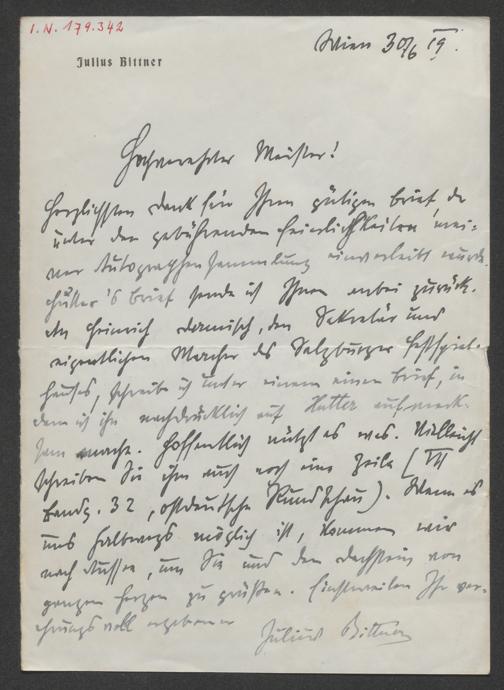 I.N. 179.342
Wien 30/6 19.
Julius Bittner
Hochverehrter Meister!
Herzlichsten Dank für Ihren gütigen Brief, der
unter den gebührenden Feierlichkeiten mei-
ner Autographensammlung einverleibt wurde.
Hutter's Brief sende ich Ihnen anbei zurück.
An Heinrich Damisch, den Sekretär und
eigentlichen Macher des Salzburger Festspiel-
hauses, schreibe ich unter einem einen Brief, in
dem ich ihn nachdrücklich auf Hutter aufmerk-
sam mache. Hoffentlich nützt es was. Vielleicht
schreiben Sie ihm auch noch eine Zeile (VII
Bandg. 32, ostdeutsche Rundschau). Wenn es
uns halbwegs möglich ist, kommen wir
nach Aussee, um Sie und den Dachstein von
ganzem Herzen zu grüßen. Einstweilen Ihr ver-
ehrungsvoll ergebener
Julius Bittner